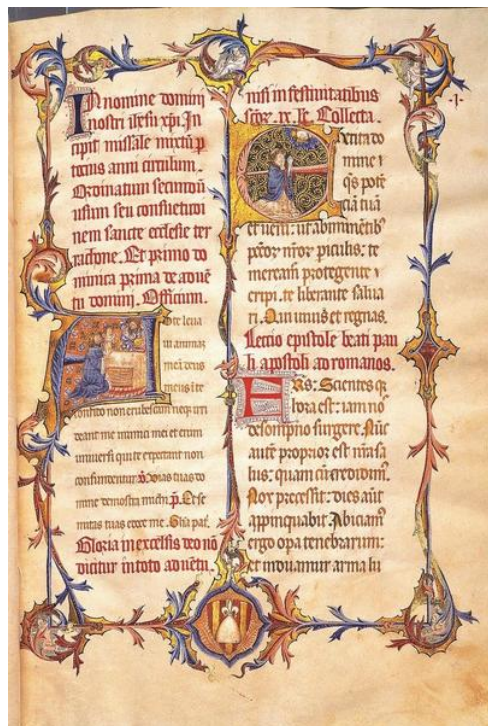 In nomine domini
nostri ihesu xpi. In
cipit missale mixtu p
totius anni circulum.
Ordinatum secundu
usum seu consuetudi
nem sancte ecclesie ter
rachone. Et primo do
minica prima de adue
tu domini. Officium.
Ad te leua
ui animam
meā deus
meus i te
confido non erubescam neqʒ irri
deant me inimici mei et enim
uniuersi qui te expectant non
confundentur. p̄. Vias tuas do
mine demostra michi p̄. Et se
mitas tuas edoce me. Gl̄ia pat̄.
Gloria in excelsis deo nō
dicitur in toto aduētu.
nisi in festiuitatibus
scōꝝ. ix. lc̄. Collecta.
-I-
Excita do
mine
qs potē
ciā tuā
et ueni: ut ab iminētibꝰ
pccōꝝ nr̄oꝝ piculis: te
mereamur protegente
eripi. te liberante salua
ri. Qui uiuis et regnas.
Lectio epistole beati pau
li apostoli ad romanos.
FRS: Scientes qꝫ
hora est: iam nos
de sompno surgere. Nūc
autē proprior est nr̄a sa
lus: quam cū credidimꝰ.
Nox precessit: dies aūt
appinquabit. Abiciamꝰ
ergo opa tenebrarum:
et induamur arma lu